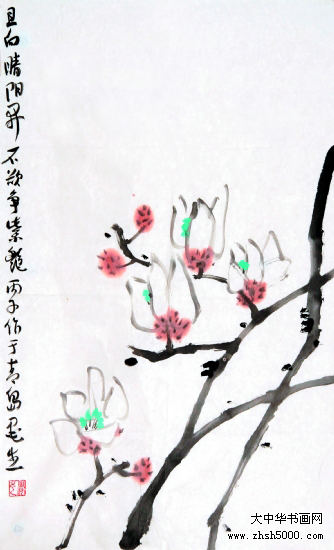 且向晴阳昇 不欲争紫艳 丙子作于青岛
大中华书画网
www.zhsh5000.com